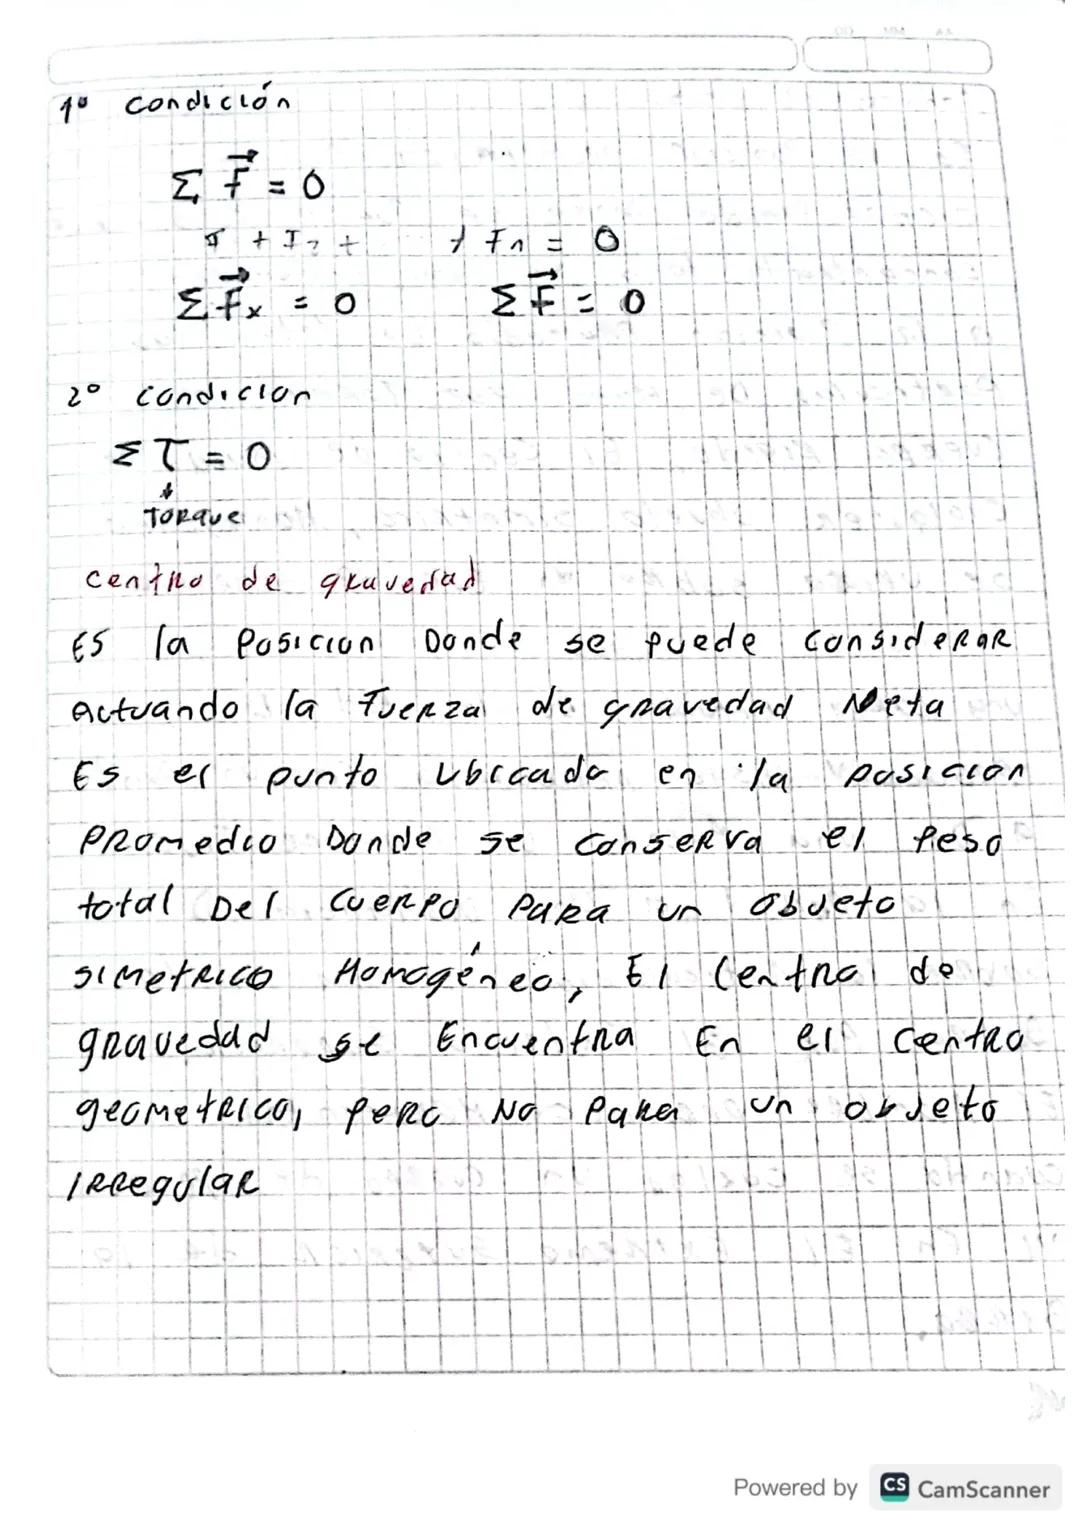 1º Condición
Σ F⃗ = 0
+ F₂ + + Fn = 0
Σ F⃗x = 0 Σ F⃗ = 0
2º condicion
Σ τ = 0
↓
Torque
Centro de gravedad
Es la Posicion Donde se puede considerar
actuando la Fuerza de gravedad Neta
Es el punto Ubicado en la posicion
Promedio Donde se conserva el Peso
total Del cuerpo Para un objeto
simetrico Homogéneo, El Centro de
gravedad se Encuentra En el centro
geometrico, pero No Para un objeto
irregular
Powered by CS CamScanner